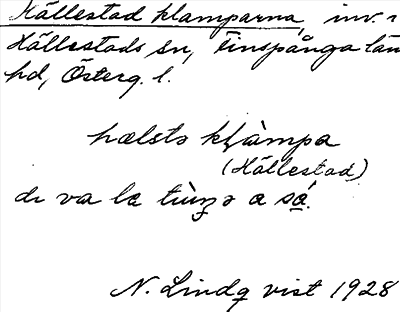 Hällestad klamparna, inv. i
Hällestads sn, Finspånga län
hd, Österg. l.
hælsta klàmpa
(Hällestad)
de va la tùŋə a så.
N. Lindqvist 1928